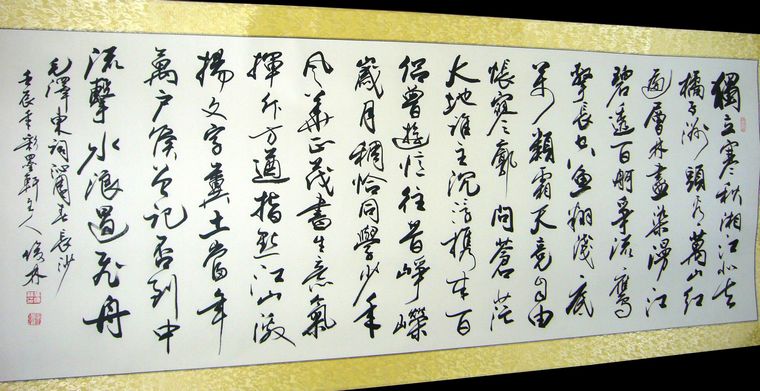 獨立寒秋湘江北去
橘子洲頭看萬山紅
遍層林盡染漫江
碧透百舸爭流鷹
擊長空魚翔淺底
萬類霜天競自由
悵寥廓問蒼茫
大地誰主沉浮攜來百
侶曾遊憶往昔崢嶸
歲月稠恰同學少年
風華正茂書生意氣
揮斥方遒指點江山激
揚文字糞土當年
萬戶侯曾記否到中
流擊水浪遏飛舟
毛澤東詞沁園春長沙
壬辰彩墨軒主人